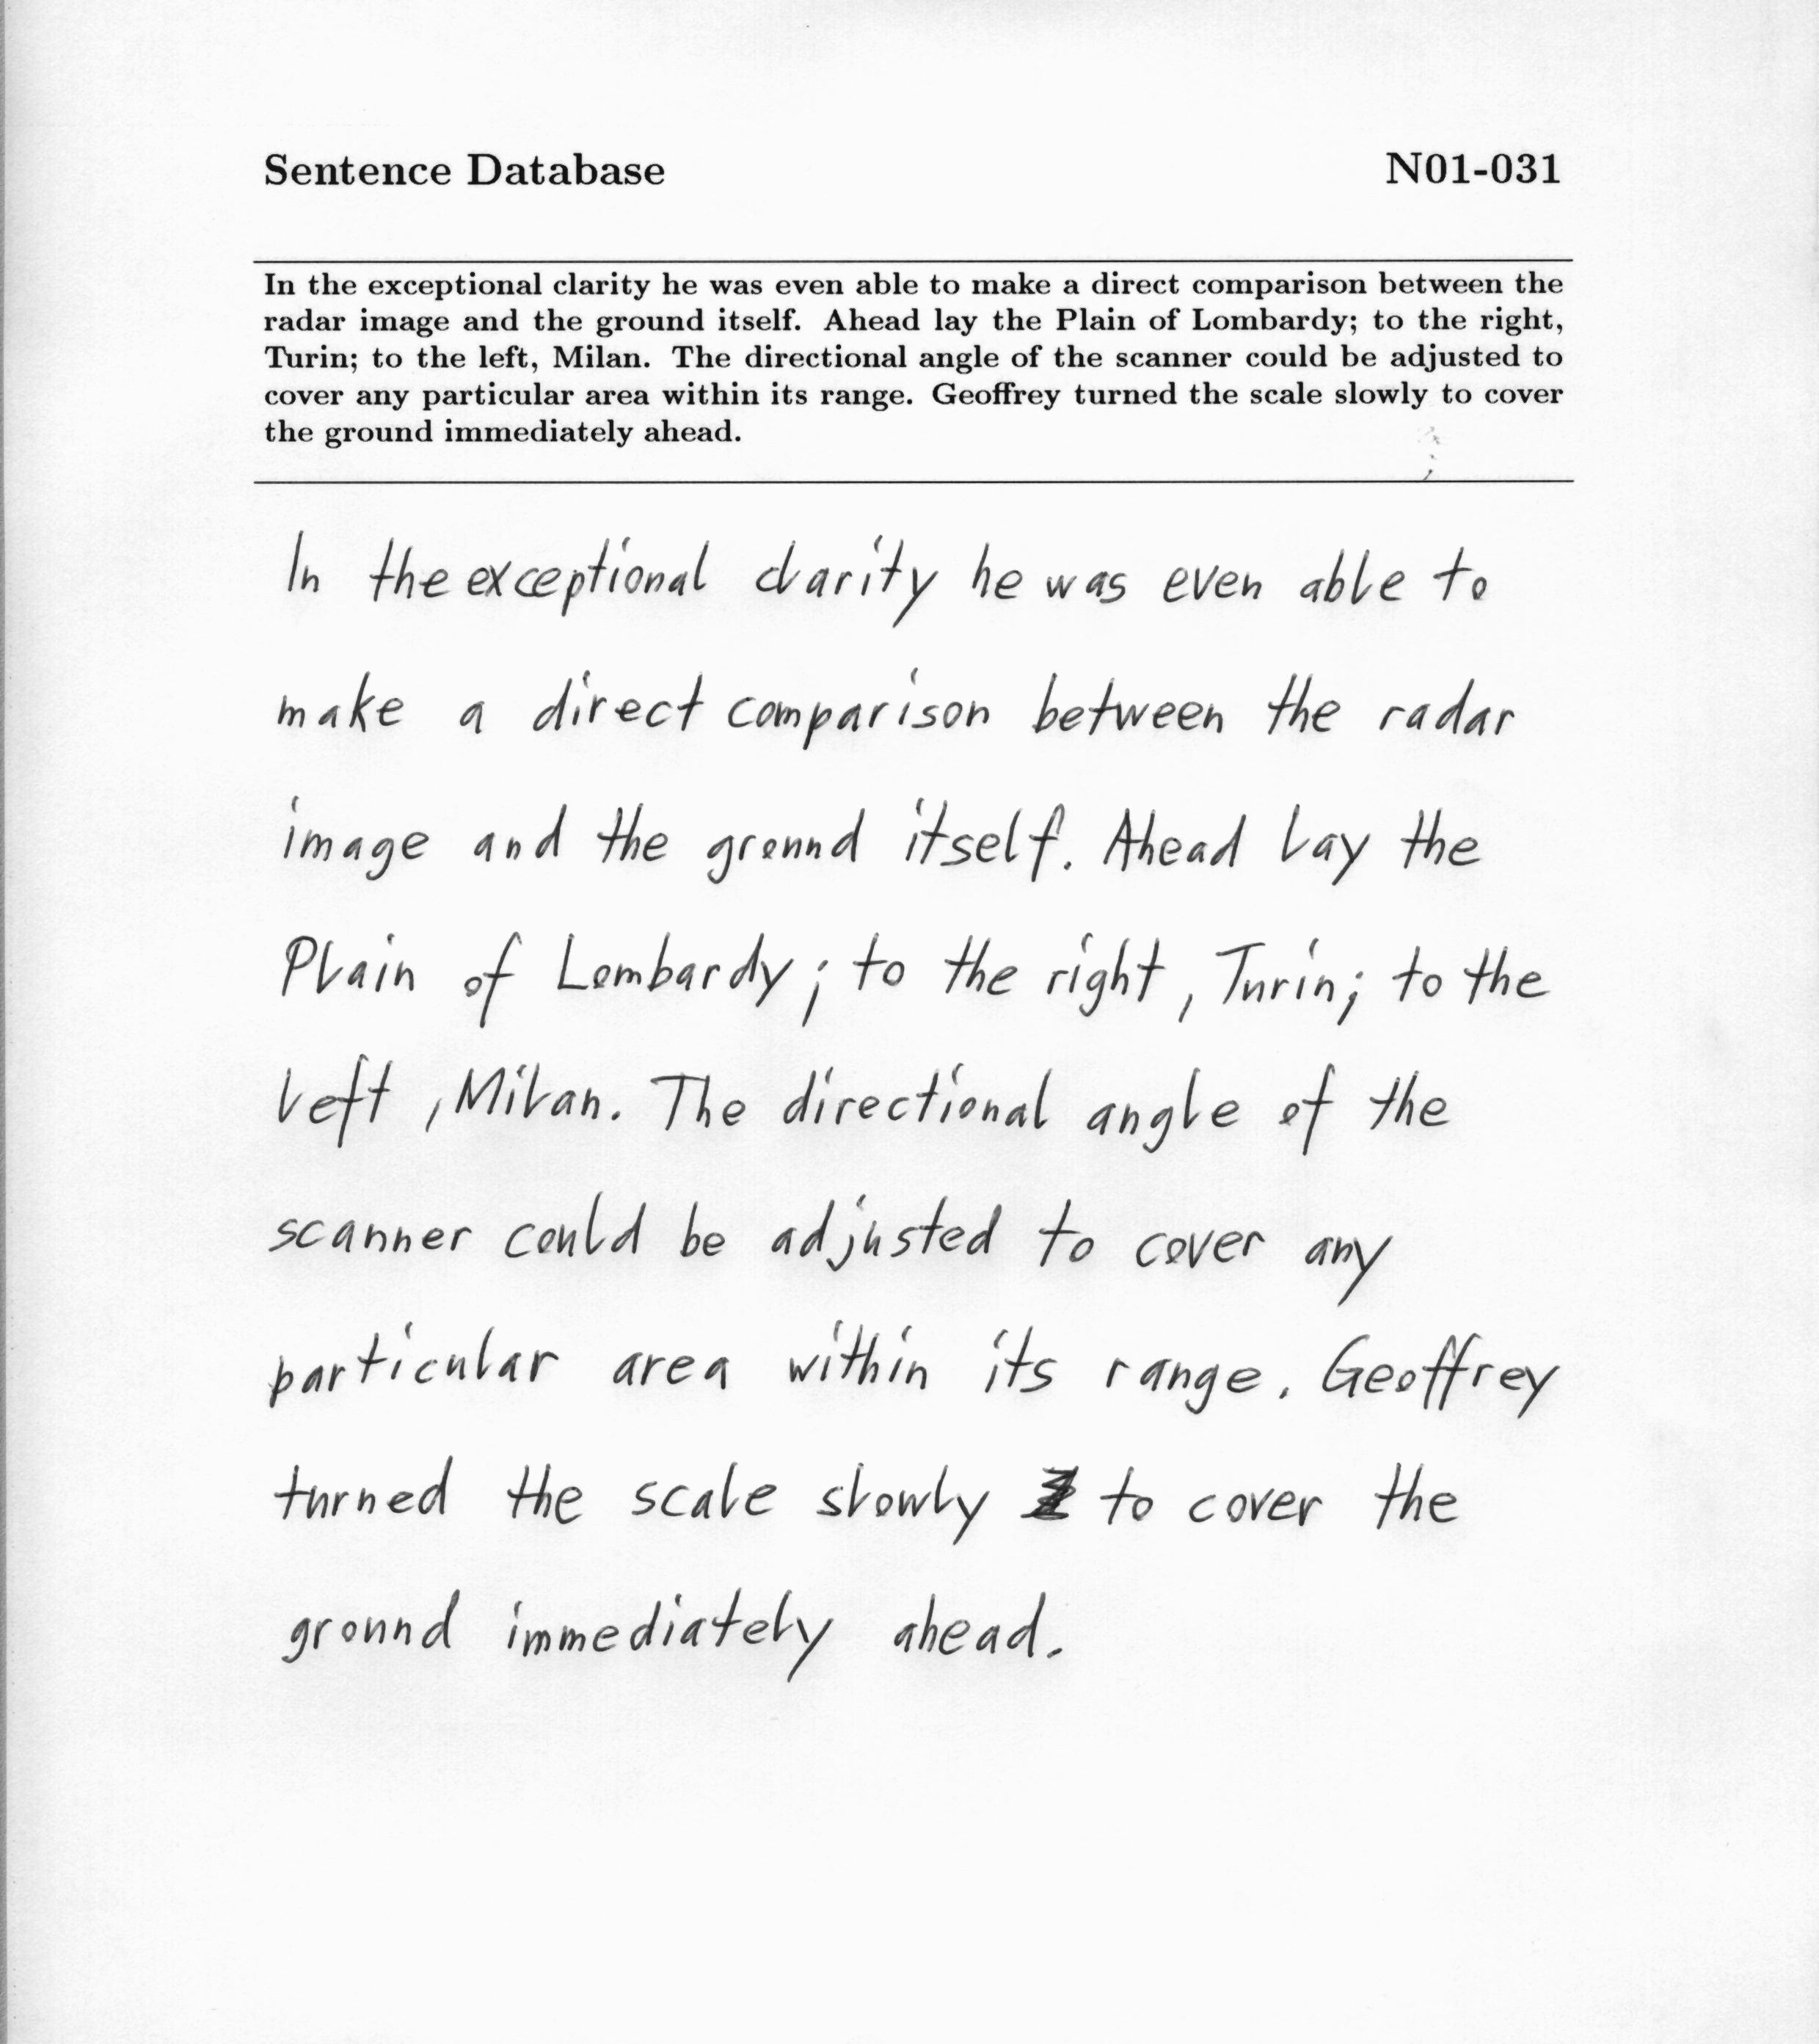 Sentence Database N01-031
In the exceptional clarity he was even able to make a direct comparison between the
radar image and the ground itself. Ahead lay the Plain of Lombardy; to the right,
Turin; to the left, Milan. The directional angle of the scanner could be adjusted to
cover any particular area within its range. Geoffrey turned the scale slowly to cover
the ground immediately ahead.
In the exceptional clarity he was even able to
make a direct comparison between the radar
image and the ground itself. Ahead lay the
Plain of Lombardy; to the right, Turin; to the
left, Milan. The directional angle of the
scanner could be adjusted to cover any
particular area within its range. Geoffrey
turned the scale slowly to cover the
ground immediately ahead.